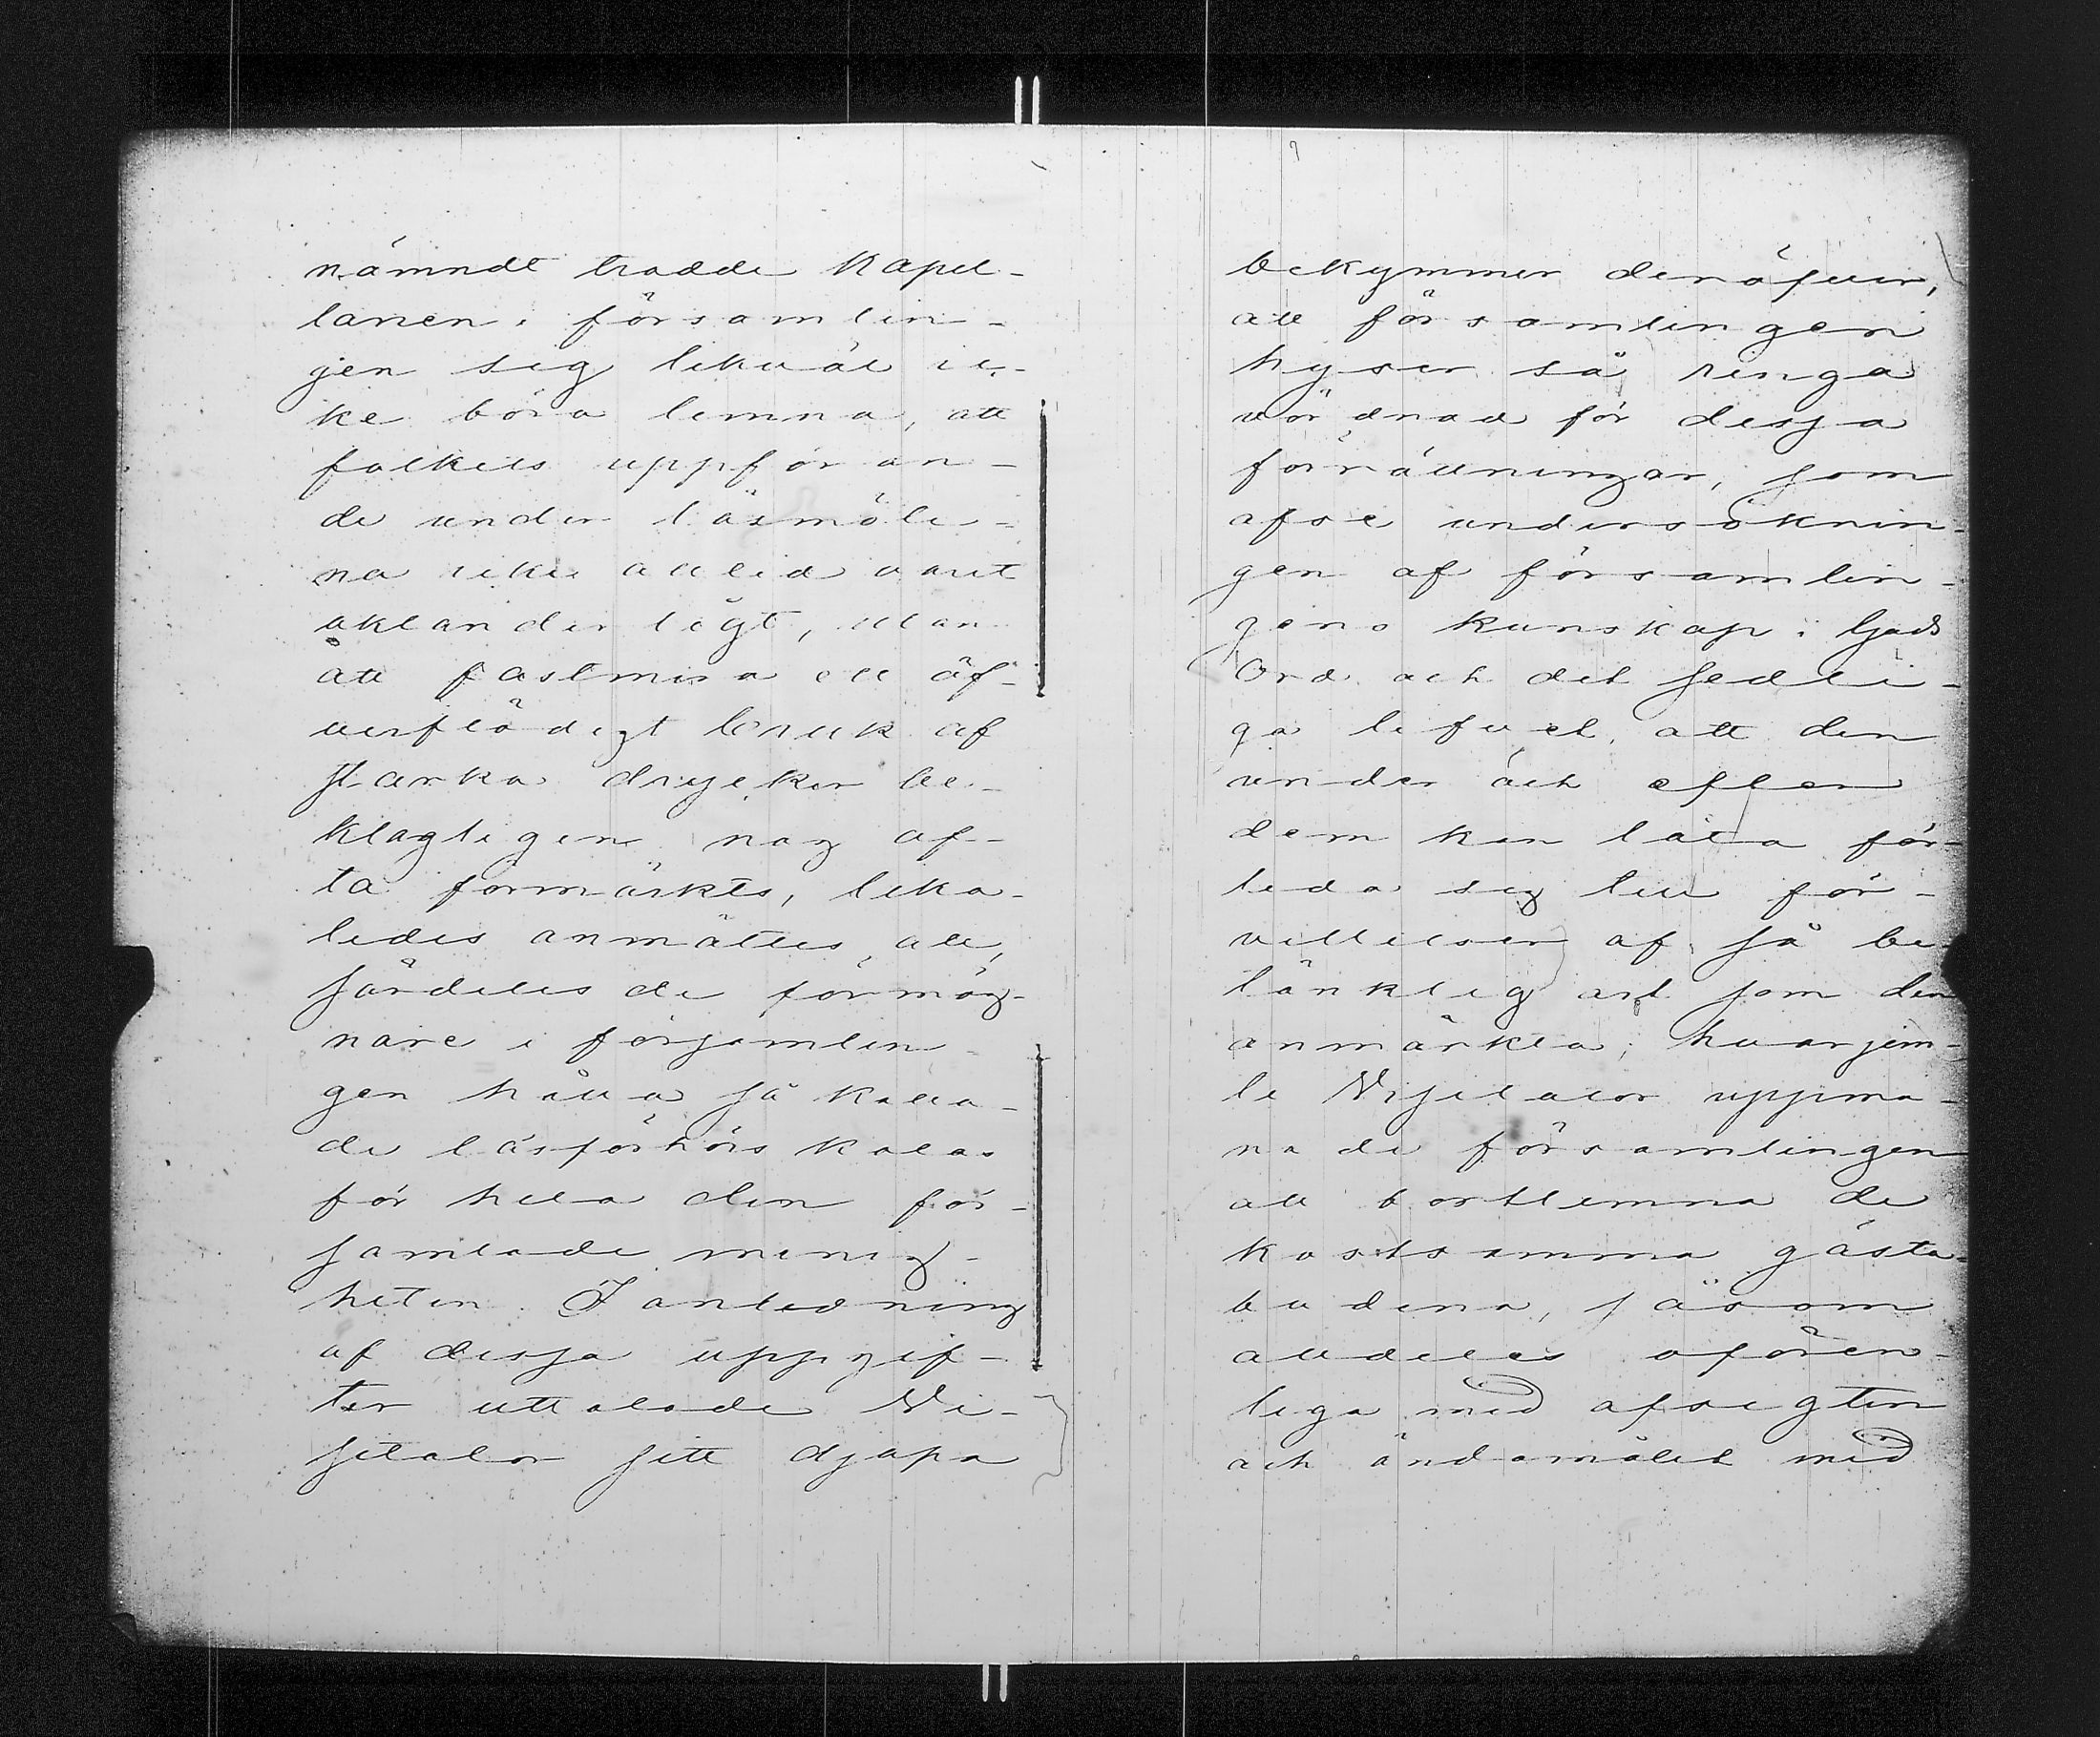 nämndt trodde Kapel-
lanen i församlin-
gen sig likväl ic-
ke böra lemna, att
folkets uppföran-
de under läsmöte-
na icke alltid varit
oklanderligt, utan
att fastmera ett öf-
verflödigt bruk af
starka drycker be-
klagligen nog of-
ta förmärkts, lika-
ledes anmältes, att,
särdeles de förmög-
nare i församlin-
gen hålla så kalla-
de läsförhörskalas
för hela den för-
samlade menig-
heten. I anledning
af dessa uppgif-
ter uttalade Vi-
sitator sitt djupa
bekymmer deröfver,
att församlingen
hyser så ringa
vördnad för dessa
förrättningar, som
afse undersöknin-
gen af församlin-
gens kunskap i Guds
Ord och det sedli-
ga lifvet, att den
under och efter
dem kan låta för-
leda sig till för-
villelser af så be-
tänklig art som den
anmärkta; hvarjem-
te Visitator uppma-
nade församlingen
att bortlemna de
kostsamma gästa-
buden, såsom
alldeles ofören-
liga med afsigten
och ändamålet med